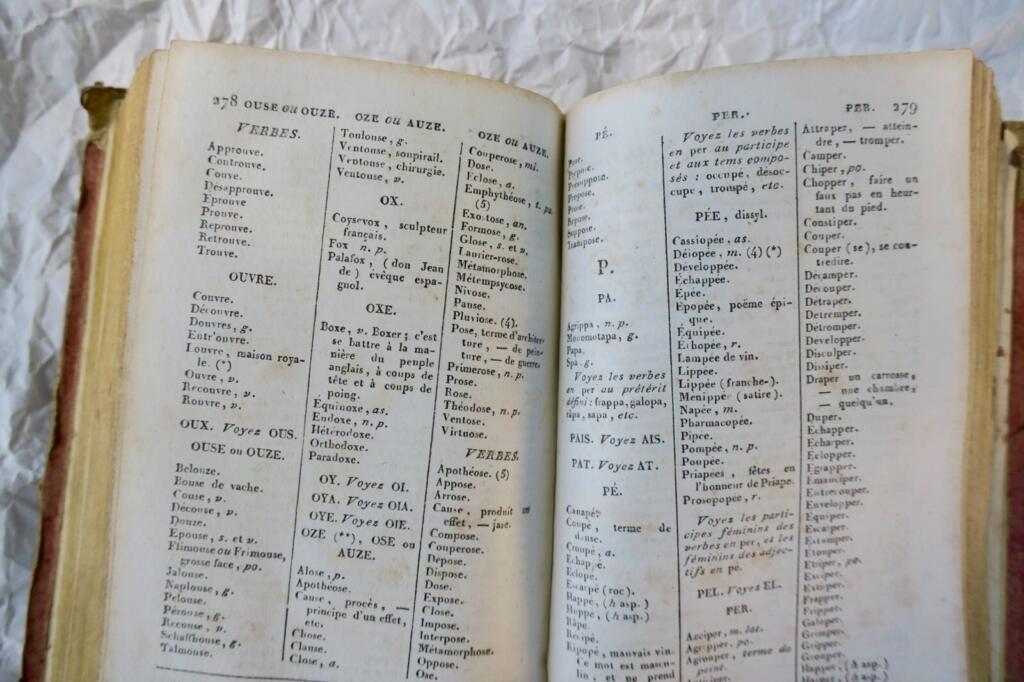 278 OUSE ou OUZE. OZE ou AUZE.
VERBES.
Approuve.
Controuve.
Couve.
Désapprouve.
Éprouve
Prouve.
Reprouve.
Retrouve.
Trouve.
OUVRE.
Couvre.
Découvre.
Douvres, g.
Entr'ouvre.
Louvre, maison roya-
le. (*)
Ouvre, v.
Recouvre, v.
Rouvre, v.
OUX. Voyez OUS.
OUSE ou OUZE.
Belouze.
Bouse de vache.
Couse, v.
Découse, v.
Douze.
Epouse, s. et v.
Flimouse ou Frimouse,
grosse face, po.
Jalouse.
Naplouse, g.
Pelouse.
Pérouse, g.
Recouse, v.
Schaffhouse, g.
Talmouse.
Toulouse, g.
Ventouse, soupirail.
Ventouse, chirurgie.
Ventouse, v.
OX.
Coysevox, sculpteur
français.
Fox n. p.
Palafox, (don Jean
de) évêque espa-
gnol.
OXE.
Boxe, v. Boxer; c'est
se battre à la ma-
nière du peuple
anglais, à coups de
tête et à coups de
poing.
Équinoxe, as.
Eudoxe, n. p.
Hétérodoxe.
Orthodoxe.
Paradoxe.
OY. Voyez OI.
OYA. Voyez OIA.
OYE. Voyez OIE.
OZE (**), OSE ou
AUZE.
Alose, p.
Apothéose.
Cause, procès, —
principe d'un effet,
etc.
Chose.
Clause.
Close, a.
OZE ou AUZE.
Couperose, mi.
Dose.
Éclose, a.
Emphythéose, t. pa.
(5)
Exostose, an.
Formose, g.
Glose, s. et v.
Laurier-rose.
Métamorphose.
Métempsycose.
Nivose.
Pause.
Pluviose. (4).
Pose, terme d'architec-
ture, — de pein-
ture, — de guerre.
Primerose, n. p.
Prose.
Rose.
Théodose, n. p.
Ventose.
Virtuose.
VERBES.
Apothéose. (5)
Appose.
Arrose.
Cause, produit un
effet, — jase.
Compose.
Couperose.
Dépose.
Dispose.
Dose.
Expose.
Glose.
Impose.
Interpose.
Métamorphose.
Oppose.
Ose.
PER. PER. 279
PÉ.
Pose.
Présuppose.
Propose.
Prose.
Repose.
Suppose.
Transpose.
P.
PA.
Agrippa, n. p.
Monomotapa, g.
Papa.
Spa. g.
Voyez les verbes
en per au prétérit
défini: frappa, galopa,
sapa, etc.
PAIS. Voyez AIS.
PAT. Voyez AT.
PÉ.
Canapé.
Coupé, terme de
danse.
Croupé, a.
Échappé.
Éclopé.
Escarpé (roc).
Happé, (h asp.)
Huppé, (h asp.)
Râpé.
Récipé.
Ripopé, mauvais vin.
Ce mot est mascu-
lin, et ne prend
Voyez les verbes
en per au participe
et aux tems compo-
sés: occupé, désoc-
cupé, trompé, etc.
PÉE, dissyl.
Cassiopée, as.
Déiopée, m. (4) (*)
Developpée.
Échappée.
Épée.
Épopée, poëme épi-
que.
Équipée.
Éthopée, r.
Lampée de vin.
Lippée.
Lippée (franche-).
Menippée (satire).
Napée, m.
Pharmacopée.
Pipée.
Pompée, n. p.
Poupée.
Priapées, fêtes en
l'honneur de Priape.
Prosopopée, r.
Voyez les parti-
cipes féminins des
verbes en per, et les
féminins des adjec-
tifs en pé.
PEL. Voyez EL.
PER.
Acciper, m. lat.
Agripper, po.
Agrouper, terme de
peint.
Attraper, — attein-
dre, — tromper.
Camper.
Chiper, po.
Chopper, faire un
faux pas en heur-
tant du pied.
Constiper.
Couper.
Couper (se), se con-
tredire.
Décamper.
Découper.
Détraper.
Détremper.
Détromper.
Developper.
Disculper.
Dissiper.
Draper un carrosse,
— une chambre,
— quelqu'un.
Duper.
Échapper.
Écharper.
Éclopper.
Égrapper.
Émanciper.
Entrecouper.
Envelopper.
Équiper.
Escarper.
Estamper.
Étouper.
Frapper.
Fripper.
Galoper.
Grimper.
Grouper.
Happer, (h asp.)